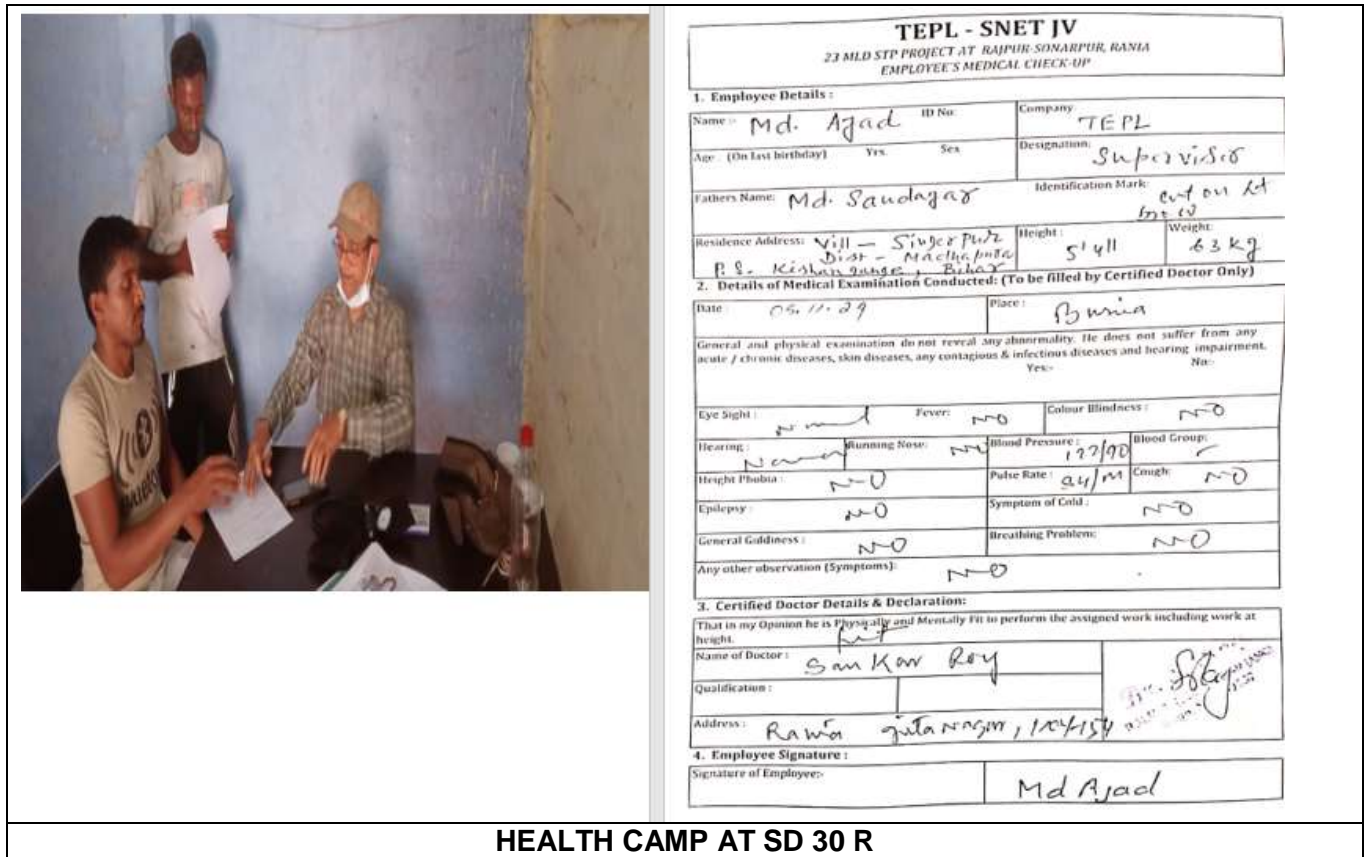 TEPL - SNET JV
23 MLD STP PROJECT AT RAJPUR-SONARPUR, RANIA
EMPLOYEE'S MEDICAL CHECK-UP
1. Employee Details :
Name :- Md. Azad ID No: Company: TEPL
Age . (On last birthday) Yrs. Sex Designation: Supervisor
Fathers Name: Md. Saudagar Identification Mark: cut on Lt
Residence Address: Vill - Singerpur Height : 5'4" Weight: 63 kg
Dist - Madhapura
P.S. Kishangunge, Bihar
2. Details of Medical Examination Conducted: (To be filled by Certified Doctor Only)
Date : 05.11.24 Place :
General and physical examination do not reveal any abnormality. He does not suffer from any
acute / chronic diseases, skin diseases, any contagious & infectious diseases and hearing impairment.
Yes:- No:-
Eye Sight : Normal Fever: NO Colour Blindness : NO
Hearing : Normal Running Nose: NO Blood Pressure : 122/90 Blood Group:
Height Phobia : NO Pulse Rate : 84/M Cough: NO
Epilepsy : NO Symptom of Cold : NO
General Guidiness : NO Breathing Problem: NO
Any other observation (Symptoms): NO
3. Certified Doctor Details & Declaration:
That in my Opinion he is Physically and Mentally Fit to perform the assigned work including work at
height. fit
Name of Doctor : Sankar Roy
Qualification :
Address : Rania
4. Employee Signature :
Signature of Employee:- Md Ajad
HEALTH CAMP AT SD 30 R